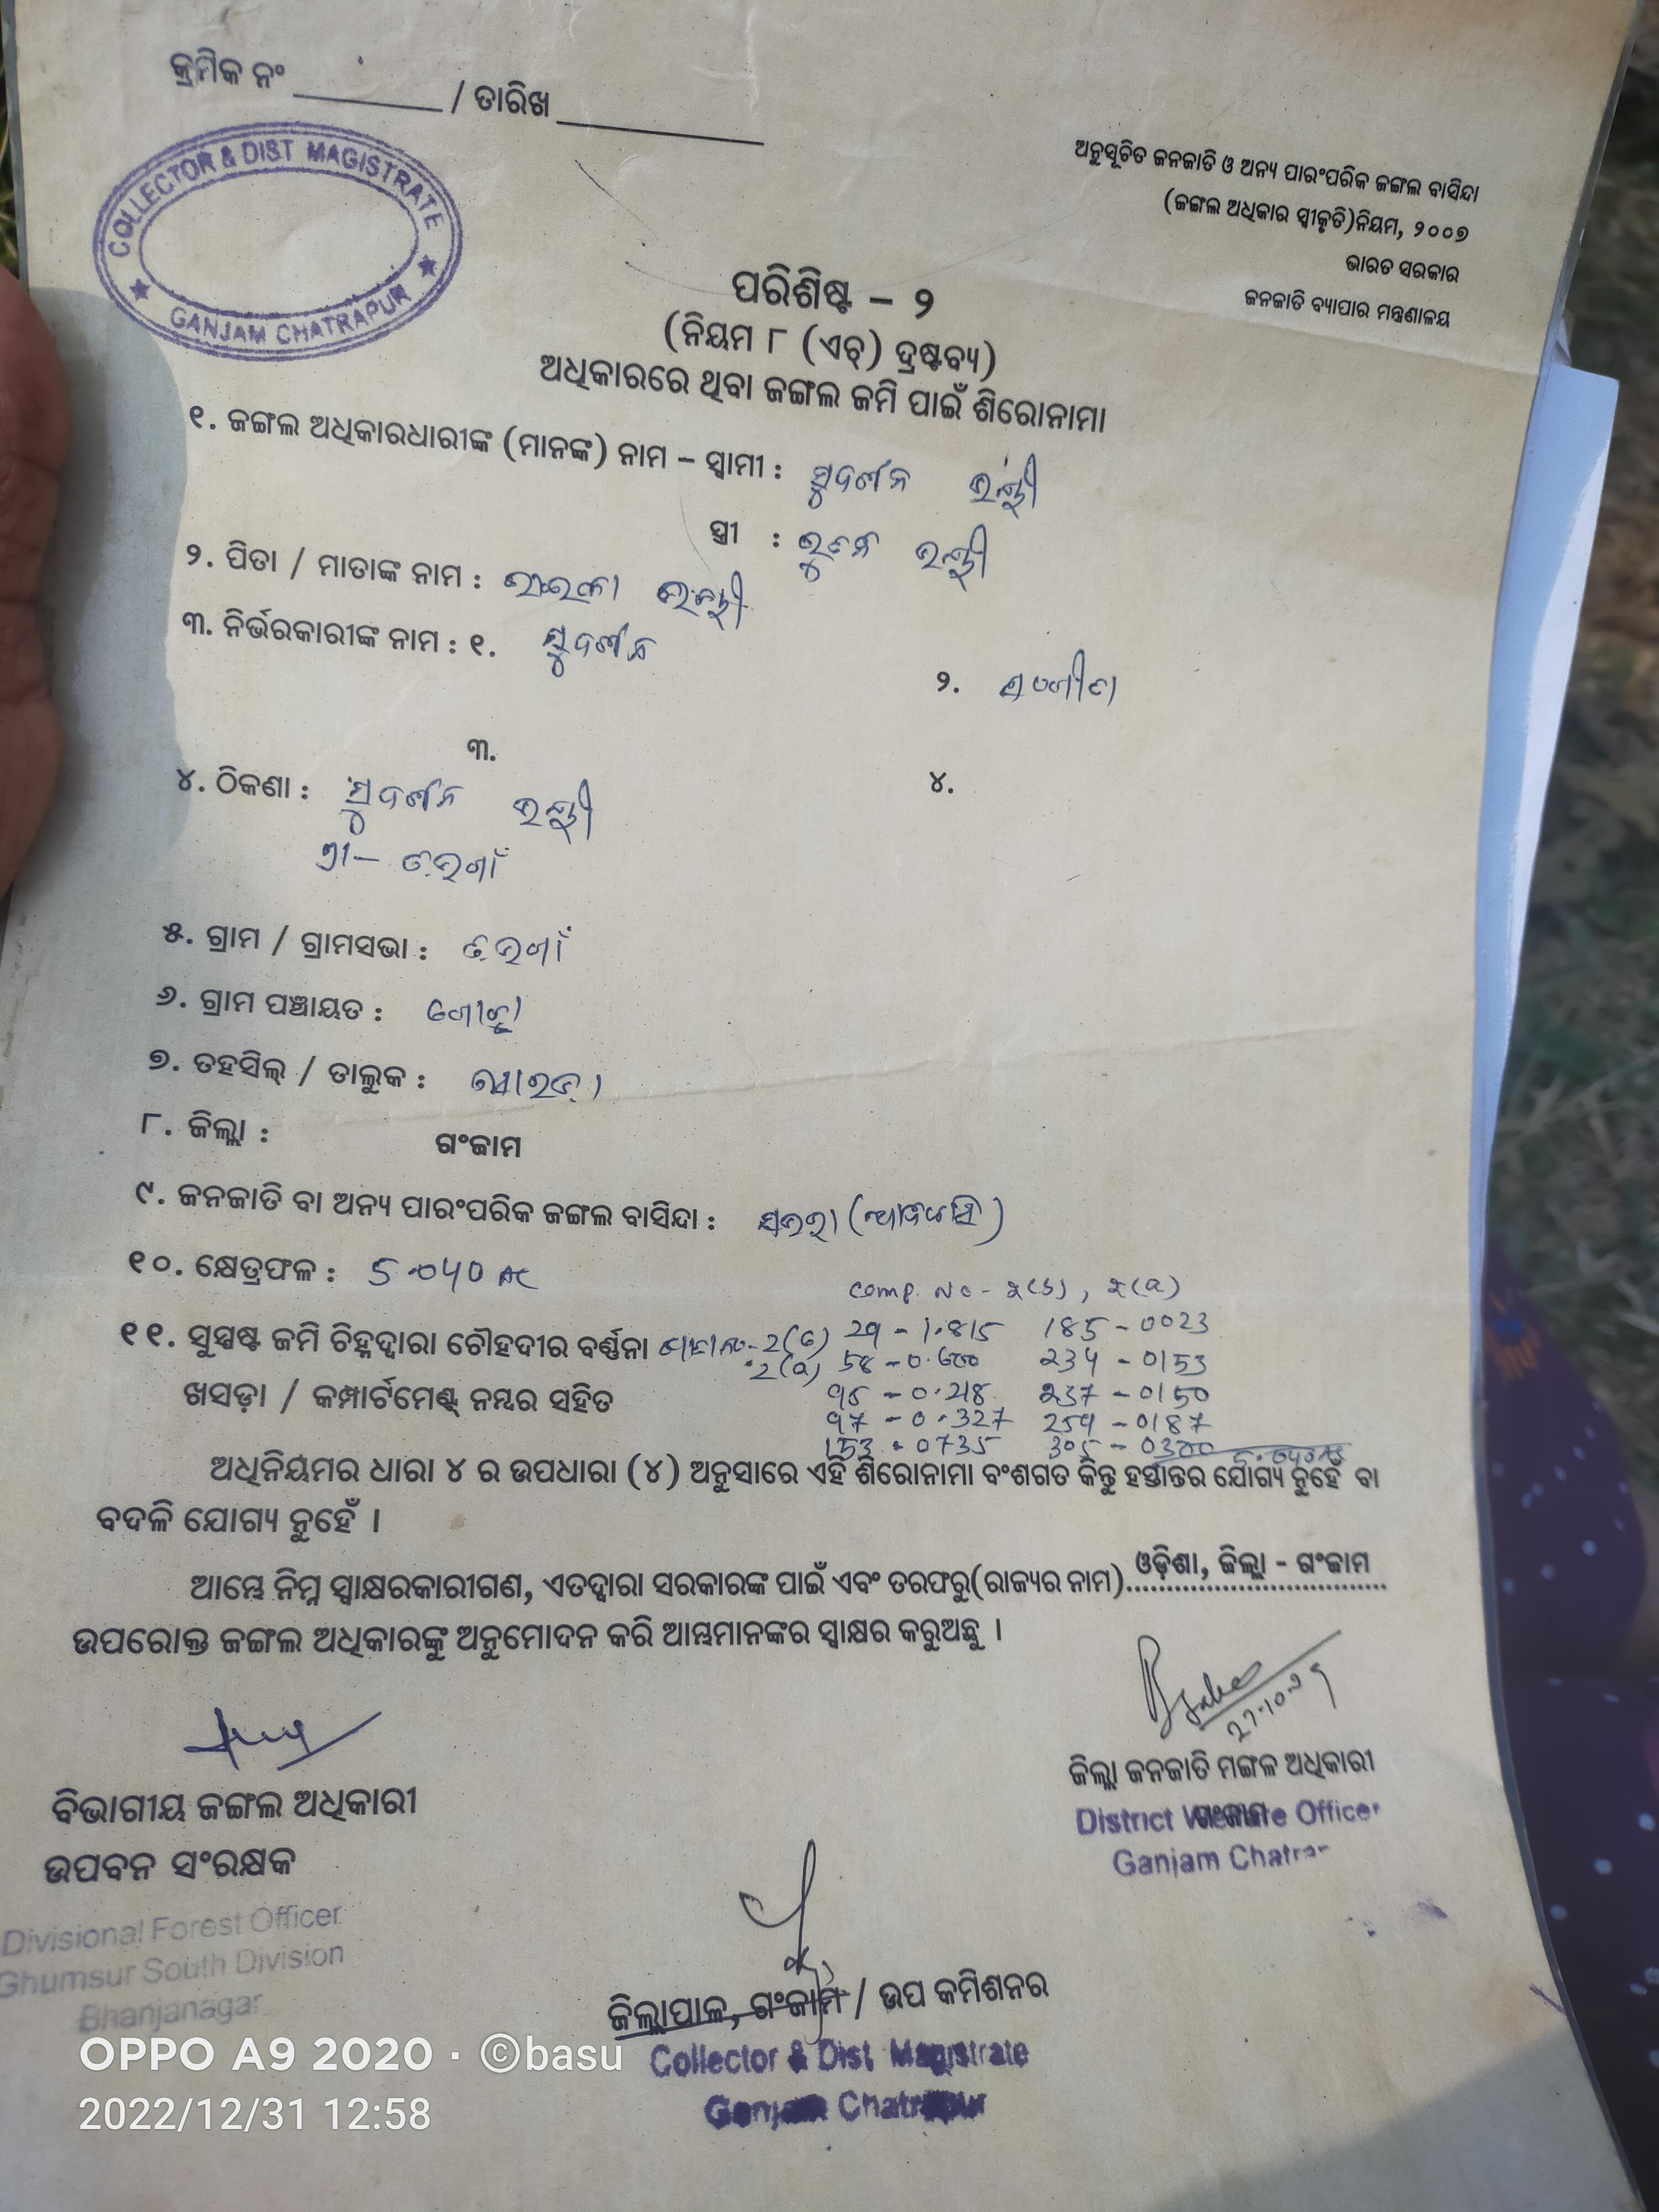 କ୍ରମିକ ନଂ ________ / ତାରିଖ ____________
COLLECTOR & DIST MAGISTRATE
GANJAM CHATRAPUR
ଅନୁସୂଚିତ ଜନଜାତି ଓ ଅନ୍ୟ ପାରଂପରିକ ଜଙ୍ଗଲ ବାସିନ୍ଦା
(ଜଙ୍ଗଲ ଅଧିକାର ସ୍ୱୀକୃତି)ନିୟମ, ୨୦୦୭
ଭାରତ ସରକାର
ଜନଜାତି ବ୍ୟାପାର ମନ୍ତ୍ରଣାଳୟ
ପରିଶିଷ୍ଟ – ୨
(ନିୟମ ୮ (ଏଚ୍) ଦ୍ରଷ୍ଟବ୍ୟ)
ଅଧିକାରରେ ଥିବା ଜଙ୍ଗଲ ଜମି ପାଇଁ ଶିରୋନାମା
୧. ଜଙ୍ଗଲ ଅଧିକାରଧାରୀଙ୍କ (ମାନଙ୍କ) ନାମ – ସ୍ୱାମୀ : ସୁଦର୍ଶନ
ସ୍ତ୍ରୀ :
୨. ପିତା / ମାତାଙ୍କ ନାମ :
୩. ନିର୍ଭରକାରୀଙ୍କ ନାମ : ୧. ସୁଦର୍ଶନ
୨.
୩.
୪.
୪. ଠିକଣା : ସୁଦର୍ଶନ
୫. ଗ୍ରାମ / ଗ୍ରାମସଭା :
୬. ଗ୍ରାମ ପଞ୍ଚାୟତ :
୭. ତହସିଲ୍ / ତାଲୁକ : ସୋରଡ଼ା
୮. ଜିଲ୍ଲା : ଗଂଜାମ
୯. ଜନଜାତି ବା ଅନ୍ୟ ପାରଂପରିକ ଜଙ୍ଗଲ ବାସିନ୍ଦା : ସଉରା (ଆଦିବାସି)
୧୦. କ୍ଷେତ୍ରଫଳ :
୧୧. ସୁସ୍ପଷ୍ଟ ଜମି ଚିହ୍ନଦ୍ୱାରା ଚୌହଦୀର ବର୍ଣ୍ଣନା
ଖସଡ଼ା / କମ୍ପାର୍ଟମେଣ୍ଟ୍ ନମ୍ବର ସହିତ
Comp. No -
29 - 1.815 185 - 0023
234 - 0153
95 - 0.218 237 - 0150
97 - 0.327 259 - 0187
153 - 0735 305 -
ଅଧିନିୟମର ଧାରା ୪ ର ଉପଧାରା (୪) ଅନୁସାରେ ଏହି ଶିରୋନାମା ବଂଶଗତ କିନ୍ତୁ ହସ୍ତାନ୍ତର ଯୋଗ୍ୟ ନୁହେଁ ବା
ବଦଳି ଯୋଗ୍ୟ ନୁହେଁ ।
ଆମ୍ଭେ ନିମ୍ନ ସ୍ୱାକ୍ଷରକାରୀଗଣ, ଏତଦ୍ୱାରା ସରକାରଙ୍କ ପାଇଁ ଏବଂ ତରଫରୁ(ରାଜ୍ୟର ନାମ) ଓଡ଼ିଶା, ଜିଲ୍ଲା - ଗଂଜାମ
ଉପରୋକ୍ତ ଜଙ୍ଗଲ ଅଧିକାରଙ୍କୁ ଅନୁମୋଦନ କରି ଆମ୍ଭମାନଙ୍କର ସ୍ୱାକ୍ଷର କରୁଅଛୁ ।
ଜିଲ୍ଲା ଜନଜାତି ମଙ୍ଗଳ ଅଧିକାରୀ
ଗଂଜାମ
District Welfare Officer
Ganjam
ବିଭାଗୀୟ ଜଙ୍ଗଲ ଅଧିକାରୀ
ଉପବନ ସଂରକ୍ଷକ
Divisional Forest Officer
Ghumsur South Division
Bhanjanagar
ଜିଲ୍ଲାପାଳ, ଗଂଜାମ / ଉପ କମିଶନର
Collector & Dist Magistrate
Ganjam Chatrapur
OPPO A9 2020 · ©basu
2022/12/31 12:58